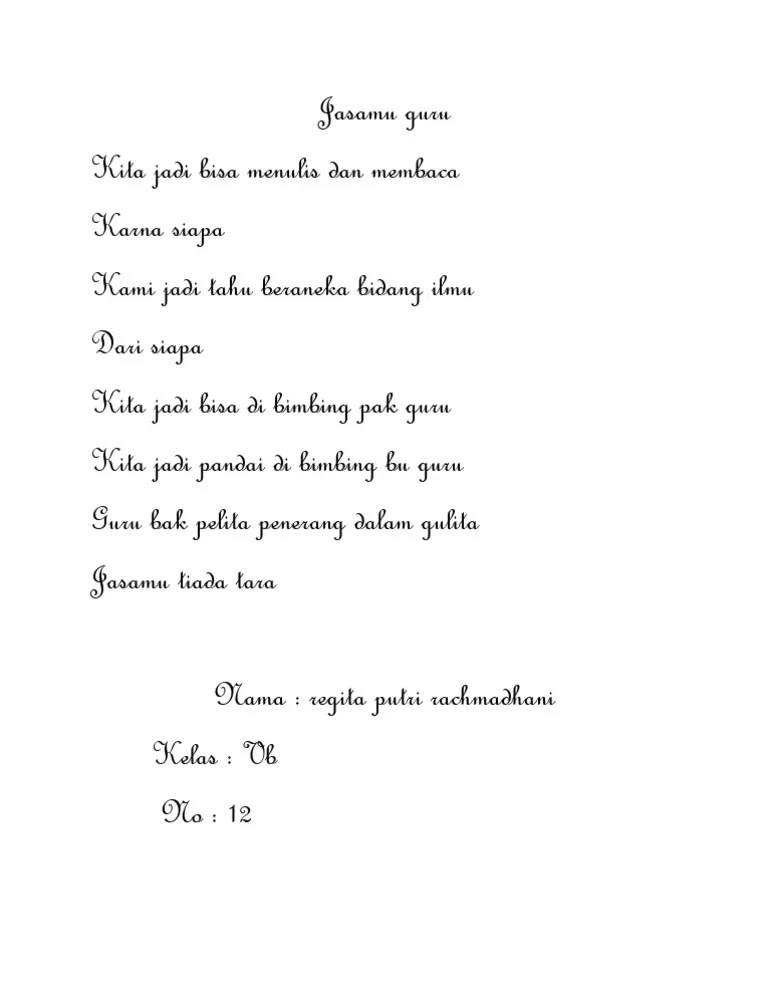 Jasamu guru
Kita jadi bisa menulis dan membaca
Karna siapa
Kami jadi tahu beraneka bidang ilmu
Dari siapa
Kita jadi bisa di bimbing pak guru
Kita jadi pandai di bimbing bu guru
Guru bak pelita penerang dalam gulita
Jasamu tiada tara
Nama : regita putri rachmadhani
Kelas : Vb
No : 12